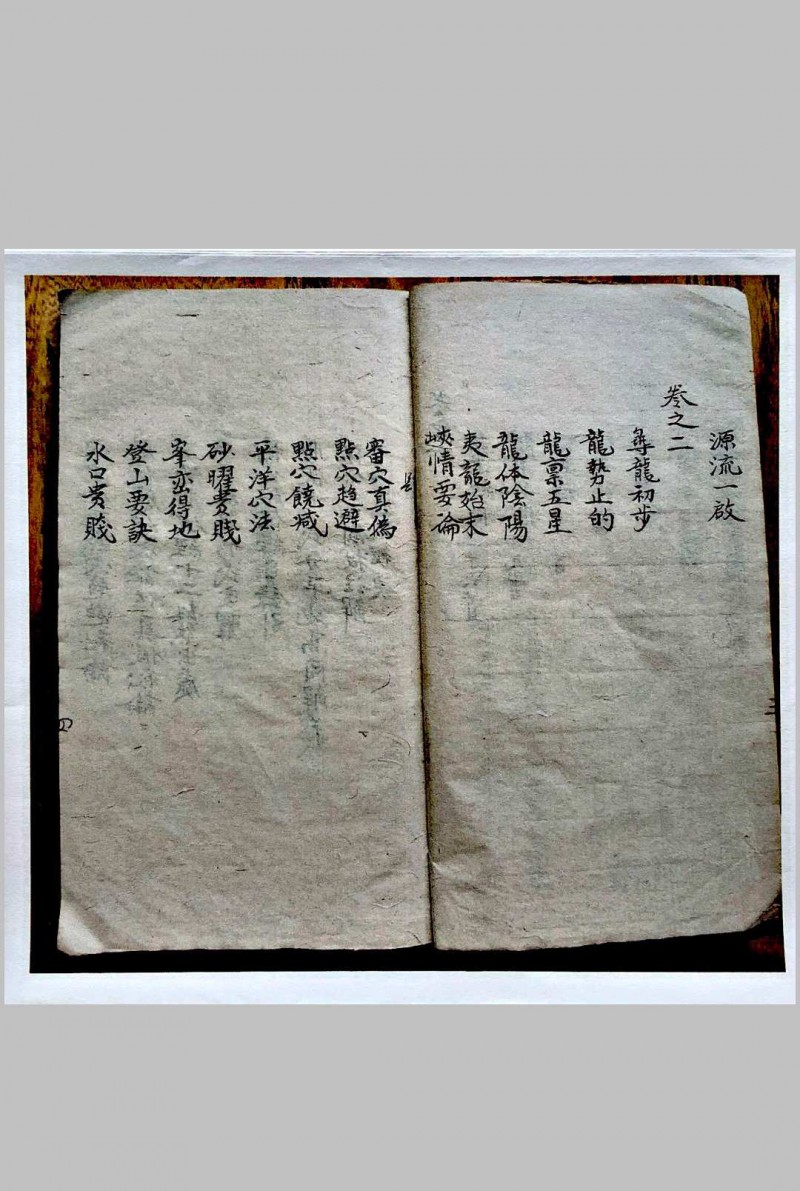 源流一啟
卷之二
尋龍初步
龍勢止的
龍禀五星
龍体陰陽
夷龍始末
峽情要論
審穴真偽
點穴趋避
點穴饒减
平洋穴法
砂曜貴賤
峯峦得地
登山要訣
水口贵賤
三
四